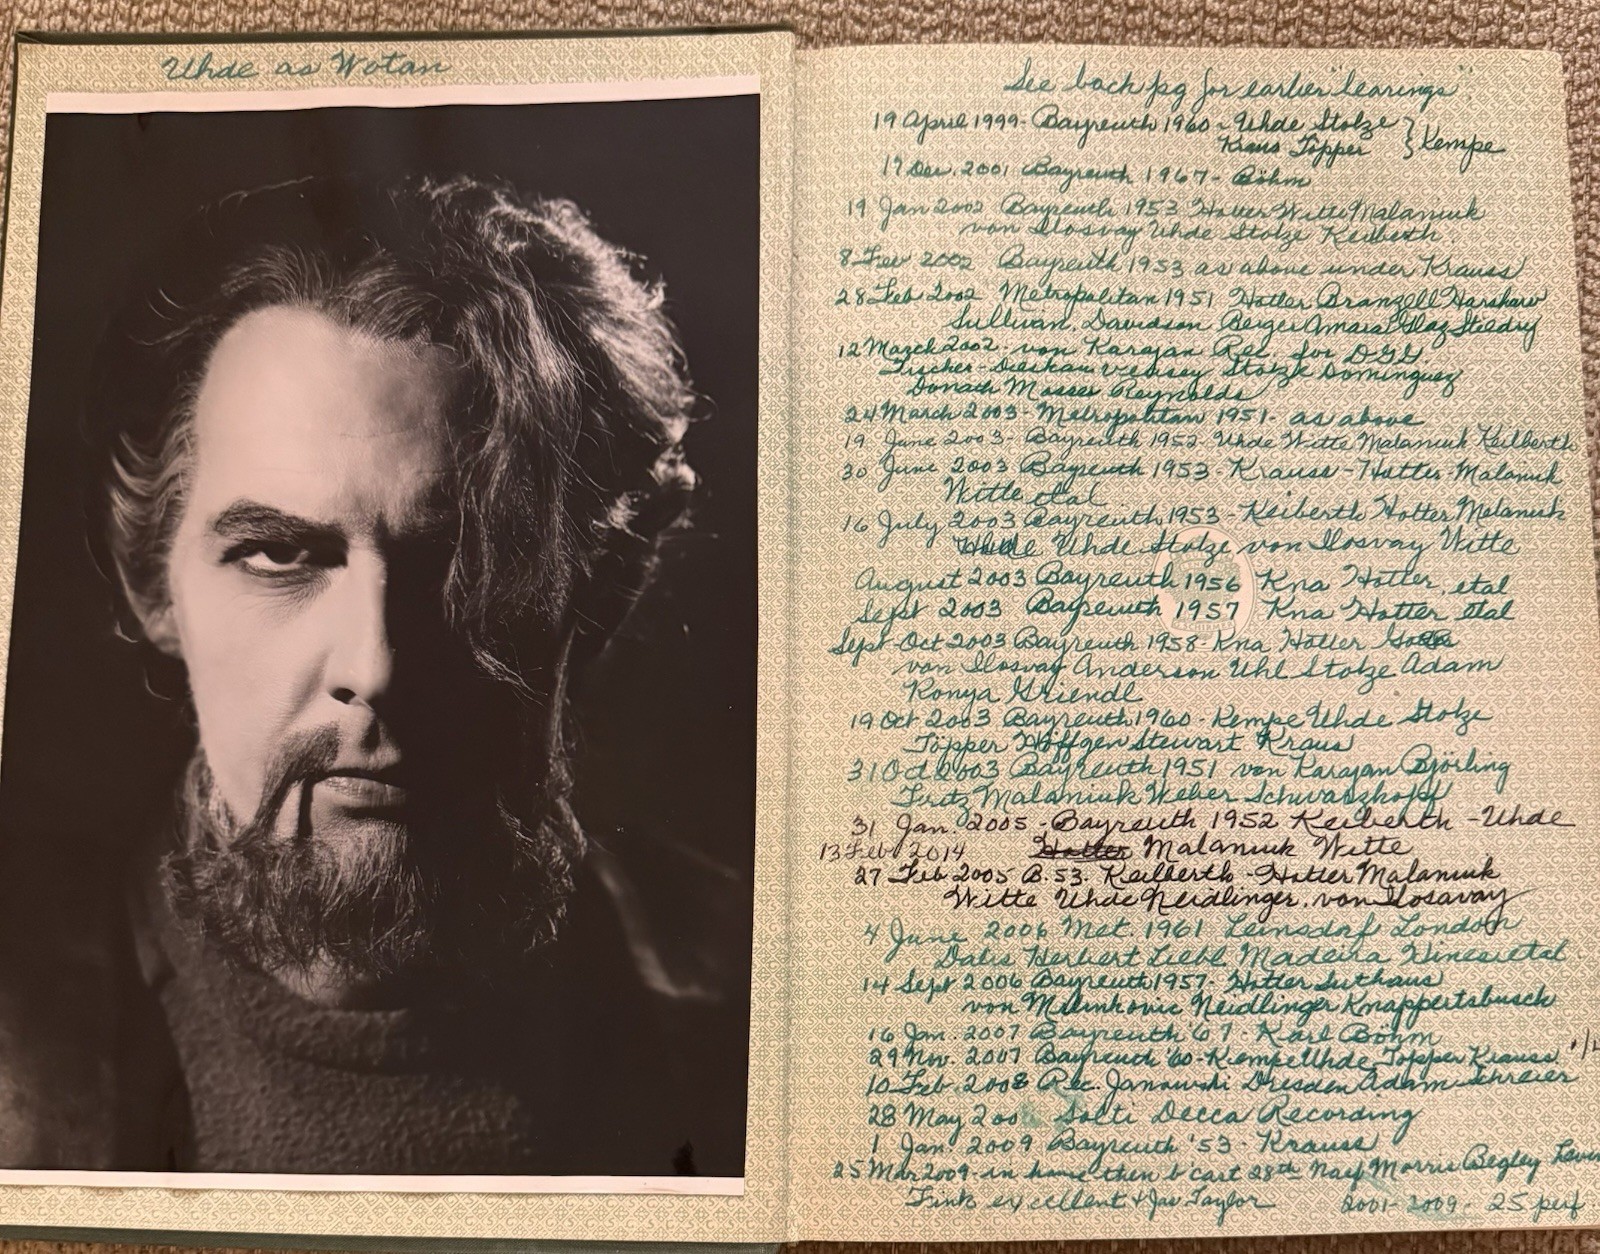 Uhde as Wotan
See back pg for earlier "hearings"
19 April 1999 - Bayreuth 1960 - Uhde Stolze
Kraus Töpper } Kempe
17 Dec. 2001 Bayreuth 1967 - Böhm
19 Jan 2002 Bayreuth 1953 Hotter Witte Malaniuk
von Ilosvay Uhde Stolze Keilberth.
8 Feb 2002 Bayreuth 1953 as above under Krauss
28 Feb 2002 Metropolitan 1951 Hotter Branzell Harshaw
Sullivan, Davidson Berger Amara Glaz Stiedry
12 March 2002 - von Karajan Rec. for DGG.
Fischer-Dieskau Veasey Stolze Dominguez
Donath Moser Reynolds
24 March 2003 - Metropolitan 1951 - as above
19 June 2003 - Bayreuth 1952 Uhde Witte Malaniuk Keilberth
30 June 2003 Bayreuth 1953 - Krauss - Hotter - Malaniuk
Witte et al
16 July 2003 Bayreuth 1953 - Keilberth Hotter Malaniuk
Uhde Stolze von Ilosvay Witte
August 2003 Bayreuth 1956 Kna Hotter, et al
Sept 2003 Bayreuth 1957 Kna Hotter et al
Sept-Oct 2003 Bayreuth 1958 - Kna Hotter
von Ilosvay Anderson Uhl Stolze Adam
Konya Griendl
19 Oct 2003 Bayreuth 1960 - Kempe Uhde Stolze
Töpper Höffgen Stewart Kraus
31 Oct 2003 Bayreuth 1951 von Karajan Björling
Fritz Malaniuk Weber Schwarzkopf
31 Jan. 2005 - Bayreuth 1952 Keilberth - Uhde
13 Feb 2014 Hotter Malaniuk Witte
27 Feb 2005 B. 53. Keilberth - Hotter Malaniuk
Witte Uhde Neidlinger, von Ilosavay
4 June 2006 Met. 1961 Leinsdorf London
Dalis Herbert Liebl Madeira Hines et al.
14 Sept 2006 Bayreuth 1957 - Hotter Suthaus
von Milinkovic Neidlinger Knappertsbusch
16 Jan. 2007 Bayreuth '67 - Karl Böhm
29 Nov. 2007 Bayreuth '60 - Kempe Uhde Töpper Krauss
10 Feb. 2008 Rec. Janowski Dresden Adam Schreier
28 May Solti Decca Recording
1 Jan. 2009 Bayreuth '53 - Krauss
25 Mar 2009 - in house then b'cast 28th Naef Morris Begley
Fink excellent + Jas Taylor 2001-2009 - 25 perf.